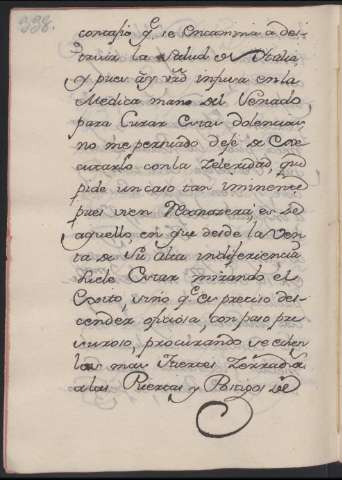 338.
contagio q.e se encamina a des-
truir la Salud de Italia,
y pues ay vrd infusa en la
Medica mano del Venado,
para Curar estas dolencias,
no me persuado deje de exe
cutarlo con la zeleridad, que
pide un caso tan iminente
pues vien
aquello, en que desde la Ven
ta de su alta indiferiencia
suele estar mirando el
Coxto, sino q.e es preciso des-
cender oficiosa, con paso pre
suroso, procurando se echen
las mas fuertes Zerradas
a las Puertas y Postigos de